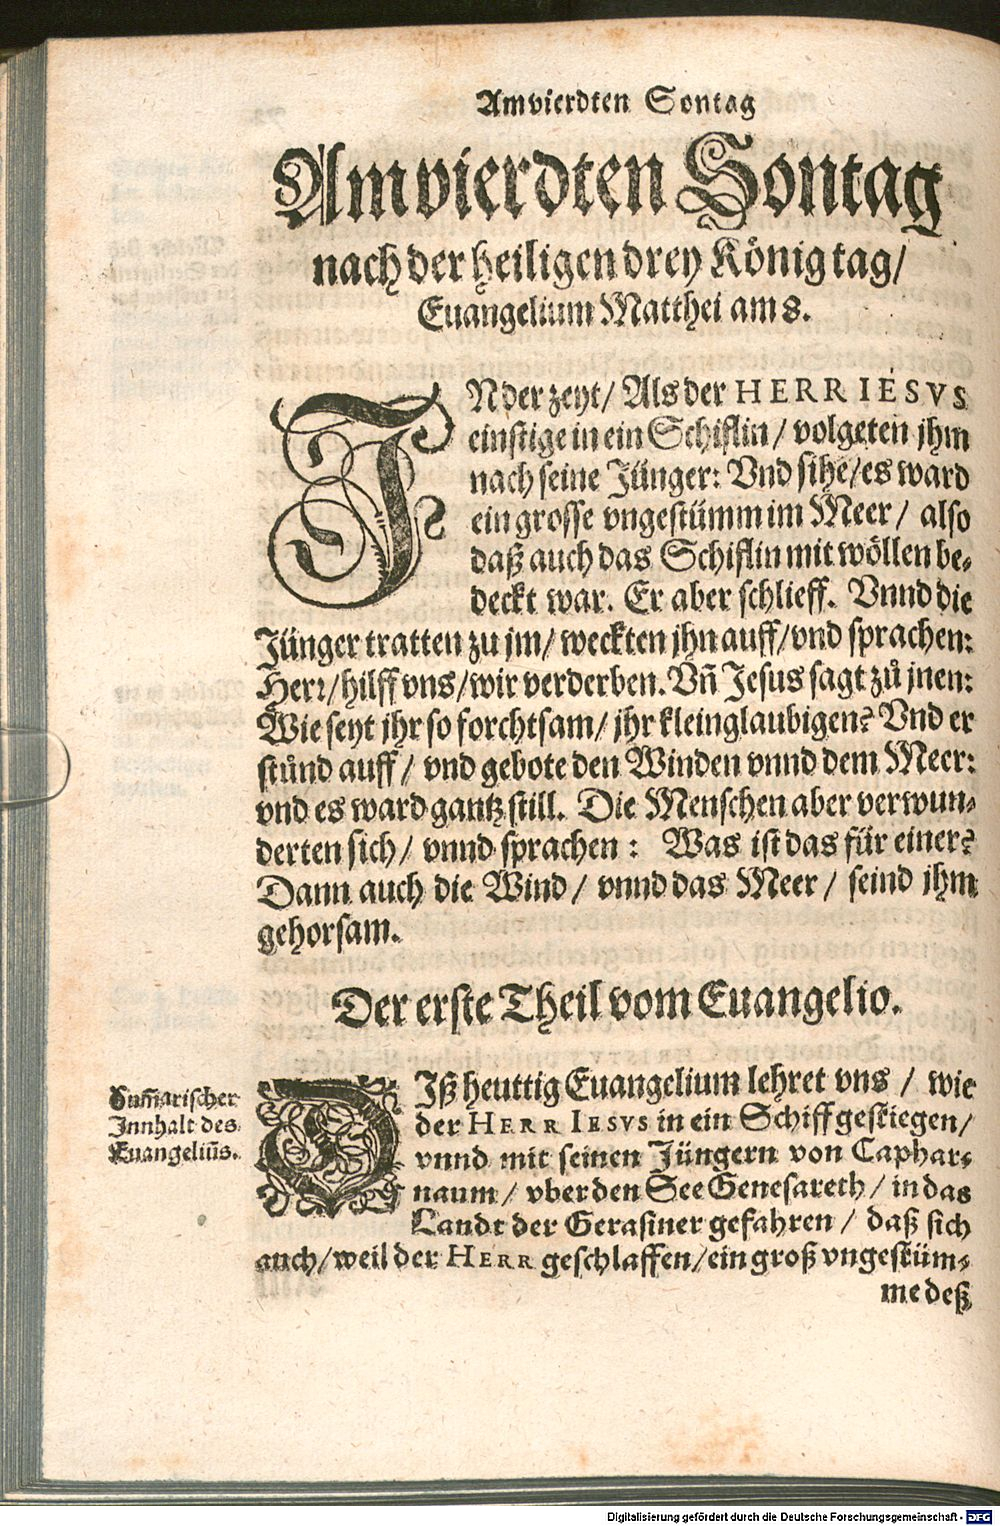 Am vierdten Sontag
Am vierdten Sontag
nach der heiligen drey König tag/
Euangelium Matthei am 8.
IN der zeyt/ Als der HERR IESVS
einstige in ein Schiflin/ volgeten jhm
nach seine Jünger: Vnd sihe/ es ward
ein grosse vngestümm im Meer/ also
daß auch das Schiflin mit wöllen be-
deckt war. Er aber schlieff. Vnnd die
Jünger tratten zu jm/ weckten jhn auff/ vnd sprachen:
Herr/ hilff vns/ wir verderben. Vñ Jesus sagt zů jnen:
Wie seyt jhr so forchtsam/ jhr kleinglaubigen? Vnd er
stůnd auff/ vnd gebote den Winden vnnd dem Meer:
vnd es ward gantz still. Die Menschen aber verwun-
derten sich/ vnnd sprachen: Was ist das für einer?
Dann auch die Wind/ vnnd das Meer/ seind jhm
gehorsam.
Der erste Theil vom Euangelio.
Sum̃arischer
Innhalt des
Euangeliũs.
DIß heuttig Euangelium lehret vns/ wie
der HERR IESVS in ein Schiff gestiegen/
vnnd mit seinen Jüngern von Caphar-
naum/ vber den See Genesareth/ in das
Landt der Gerasiner gefahren/ daß sich
auch/ weil der HERR geschlaffen/ ein groß vngestüm-
me deß
Digitalisierung gefördert durch die Deutsche Forschungsgemeinschaft - DFG